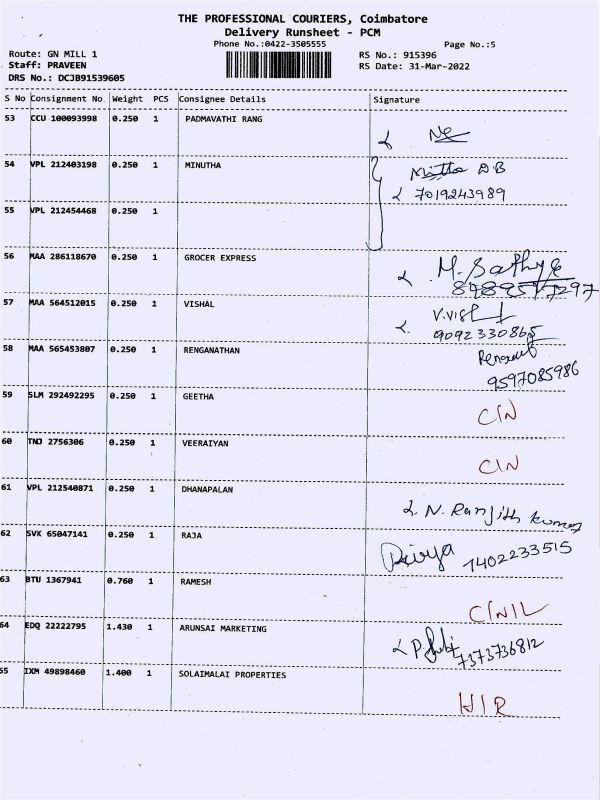 THE PROFESSIONAL COURIERS, Coimbatore
Delivery Runsheet - PCM
Phone No.:0422-3505555 Page No.:5
Route: GN MILL 1 RS No.: 915396
Staff: PRAVEEN RS Date: 31-Mar-2022
DRS No.: DCJB91539605
S No Consignment No. Weight PCS Consignee Details Signature
53 CCU 100093998 0.250 1 PADMAVATHI RANG
54 VPL 212403198 0.250 1 MINUTHA D.B
7019243989
55 VPL 212454468 0.250 1
56 MAA 286118670 0.250 1 GROCER EXPRESS M. Sathya
57 MAA 564512015 0.250 1 VISHAL
9092330865
58 MAA 565453807 0.250 1 RENGANATHAN
9597085986
59 SLM 292492295 0.250 1 GEETHA C/N
60 TNJ 2756306 0.250 1 VEERAIYAN C/N
61 VPL 212540871 0.250 1 DHANAPALAN N. Ranjith Kumar
62 SVK 65047141 0.250 1 RAJA Divya 7402233515
63 BTU 1367941 0.760 1 RAMESH C/N/L
64 EDQ 22222795 1.430 1 ARUNSAI MARKETING 7373736812
55 IXM 49898460 1.400 1 SOLAIMALAI PROPERTIES H/R